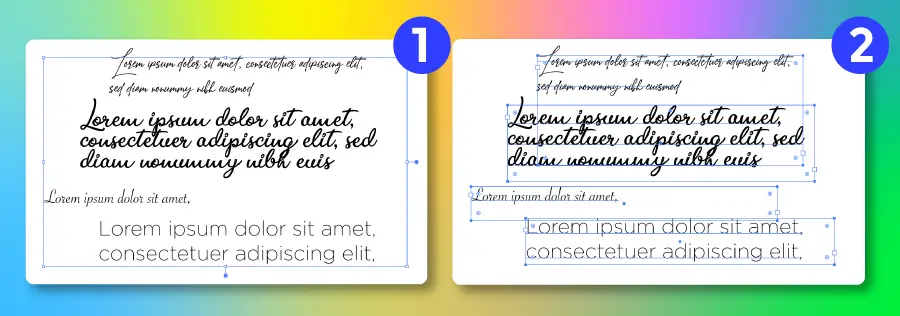 1
Lorem ipsum dolor sit amet, consectetuer adipiscing elit,
sed diam nonummy nibh euismod
Lorem ipsum dolor sit amet,
consectetuer adipiscing elit, sed
diam nonummy nibh euis
Lorem ipsum dolor sit amet,
Lorem ipsum dolor sit amet,
consectetuer adipiscing elit,
2
Lorem ipsum dolor sit amet, consectetuer adipiscing elit,
sed diam nonummy nibh euismod
Lorem ipsum dolor sit amet,
consectetuer adipiscing elit, sed
diam nonummy nibh euis
Lorem ipsum dolor sit amet,
Lorem ipsum dolor sit amet,
consectetuer adipiscing elit,